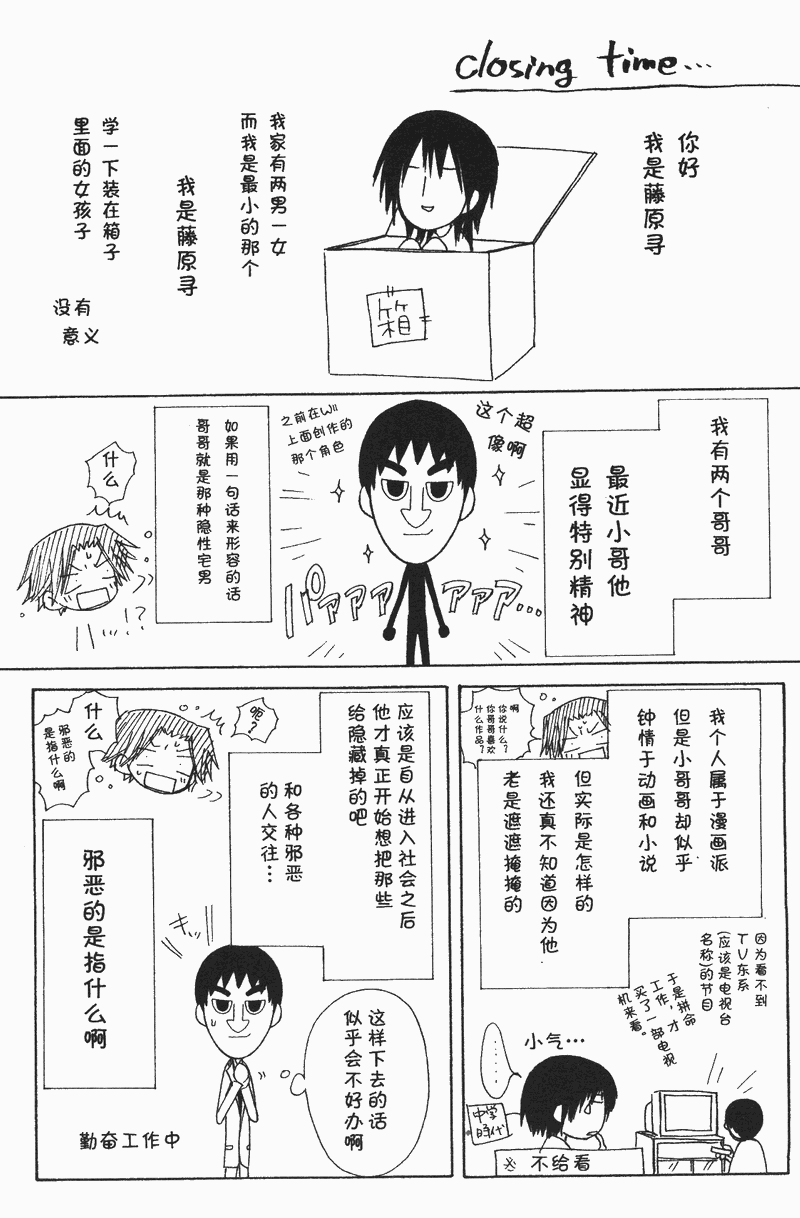 closing time...
你好
我是藤原寻
箱
我家有两男一女
而我是最小的那个
我是藤原寻
学一下装在箱子
里面的女孩子
没有
意义
我有两个哥哥
最近小哥他
显得特别精神
这个超
像啊
之前在Wii
上面创作的
那个角色
パァァァ ァァァ...
如果用一句话来形容的话
哥哥就是那种隐性宅男
什么
!?
我个人属于漫画派
但是小哥哥却似乎
钟情于动画和小说
但实际是怎样的
我还真不知道因为他
老是遮遮掩掩的
啊?
你说什么?
你哥哥喜欢
什么作品?
因为看不到
TV东系
(应该是电视台
名称)的节目
于是拼命
工作,才
买了一部电视
机来看。
小气...
中学
時代
※不给看
应该是自从进入社会之后
他才真正开始想把那些
给隐藏掉的吧
和各种邪恶
的人交往...
呃?
什么
邪恶的
是指什么啊
邪恶的是指什么啊
キ...
这样下去的话
似乎会不好办
啊
勤奋工作中